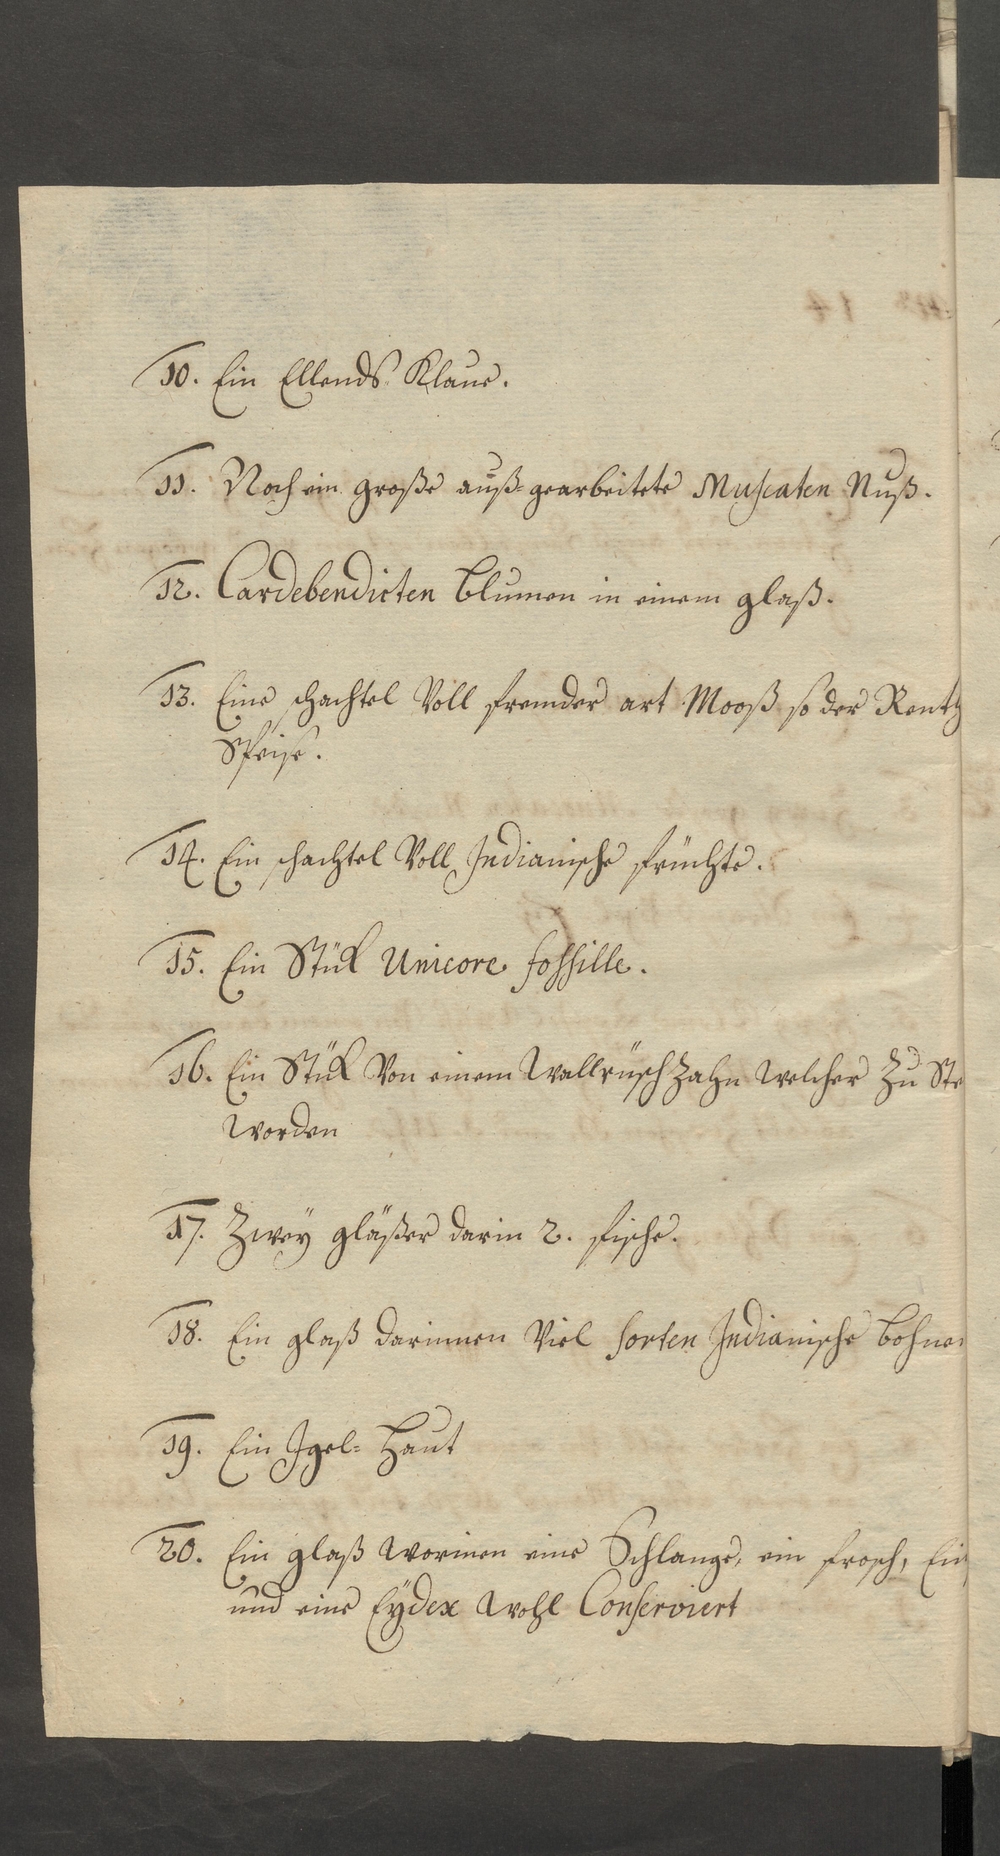 10. Ein Ellends Klaue.
11. Noch ein große auß-gearbeitete Muscaten Nuß.
12. Cardebendicten Blumen in einem glaß.
13. Eine schachtel Voll frembder art Mooß so der Renth
Speise.
14. Ein schachtel Voll Indianische früchte.
15. Ein Stük Unicore fossille.
16. Ein Stük Von einem Wallrüsch Zahn welcher Zu Ste
worden
17. Zweÿ gläßer darin 2. fische.
18. Ein glaß darinnen Viel sorten Indianische bohne
19. Ein Igel= Haut
20. Ein glaß worinen eine Schlange, ein frosch, Ein
und eine Eÿdex wohl Conserviert